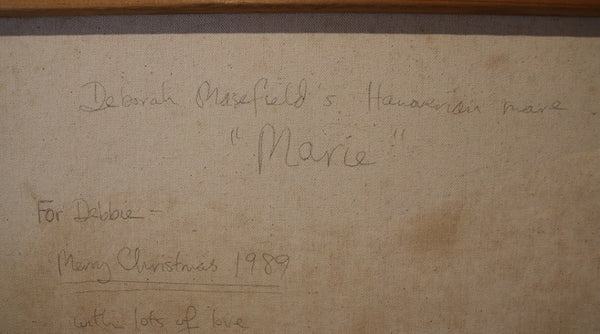 Deborah Masefield's Hanoverian mare
"Marie"
For Debbie -
Merry Christmas 1989
with lots of love